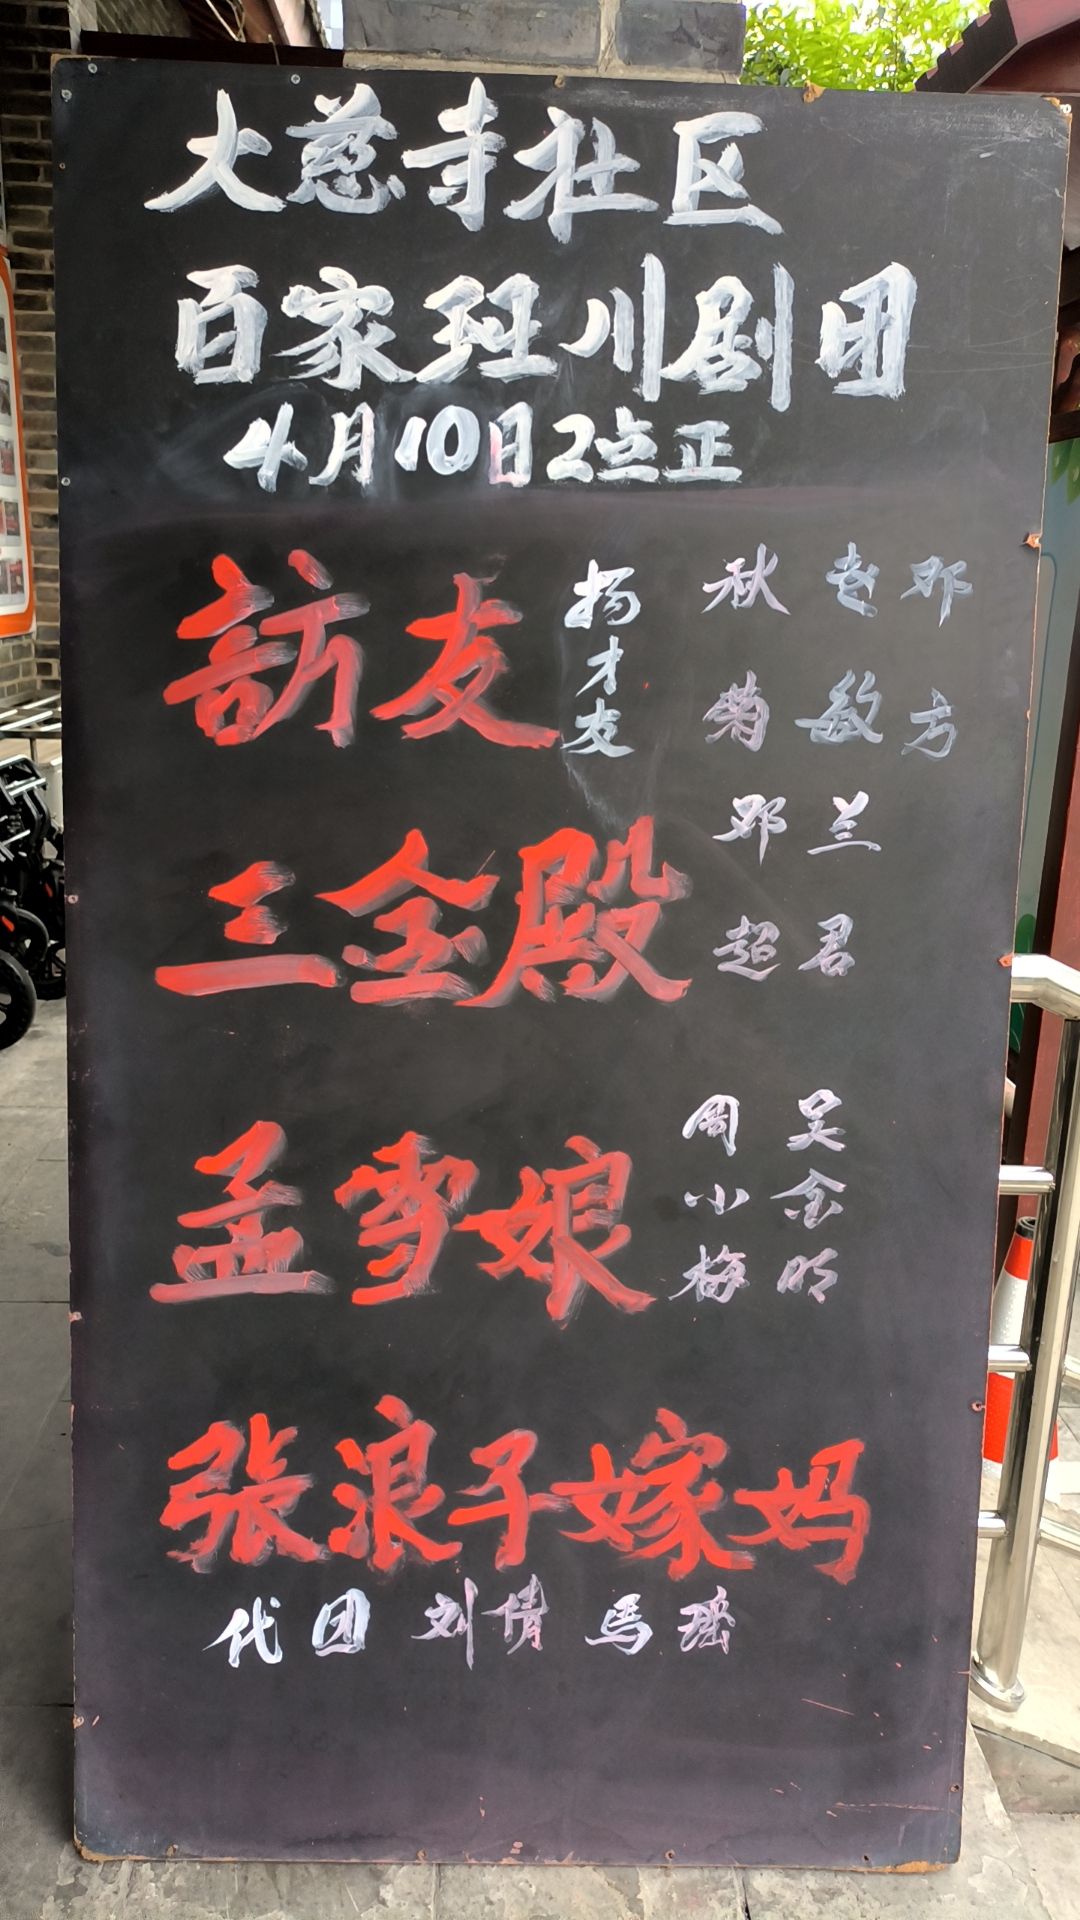 大慈寺社区
百家班川剧团
4月10日2点正
訪友
杨才友
秋菊
赵敏
邓方
三金殿
邓超
兰君
孟雪娘
周小梅
吴金明
张浪子嫁妈
代团 刘倩 馬瑶